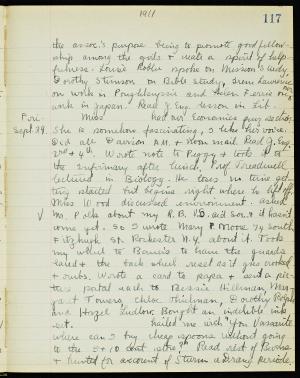 1911
117
the assoc.'s purpose being to promote good fellow-
ship among the girls & make a spirit of help-
fulness. Louise spoke on Mission Study,
Dorothy Stimson on Bible Study, Irene Lawrence
on work in Poughkeepsie and Helen Ferris on
work in Japan. Read J. Eng. lesson in Lib.
Fri. Miss has our Economics quiz section.
Sept. 29. She is somehow fascinating, I like her voice.
Did all Darwin A.M. & noon mail. Read J. Eng.
2nd & 4th. Wrote note to Peggy & took it to
the Infirmary after lunch. Prof. Treadwell
lectured in Biology. He loses no time get-
ting started but begins right where he left off.
Miss Wood discussed environment. Asked
Mrs. about my R.B. & it hasn't
come yet. So I wrote Mary F. Moore 74 South
Fitzhugh St. Rochester N.Y. about it. Took
my wheel to to have the guards
and the back wheel as it was
& rubs. Wrote a card to papa & sent a pic-
ture postal each to Bessie Hillman, Mar-
garet Towers, Chloe Thielman, Dorothy
and Hazel Ludlow. Bought an indelible ink
set. hailed me with "You Vassarite
where can I buy cheap spoons without going
to the 5 & 10 cent store?" Read rest of
& hunted for account of Sturm & Drang periode.